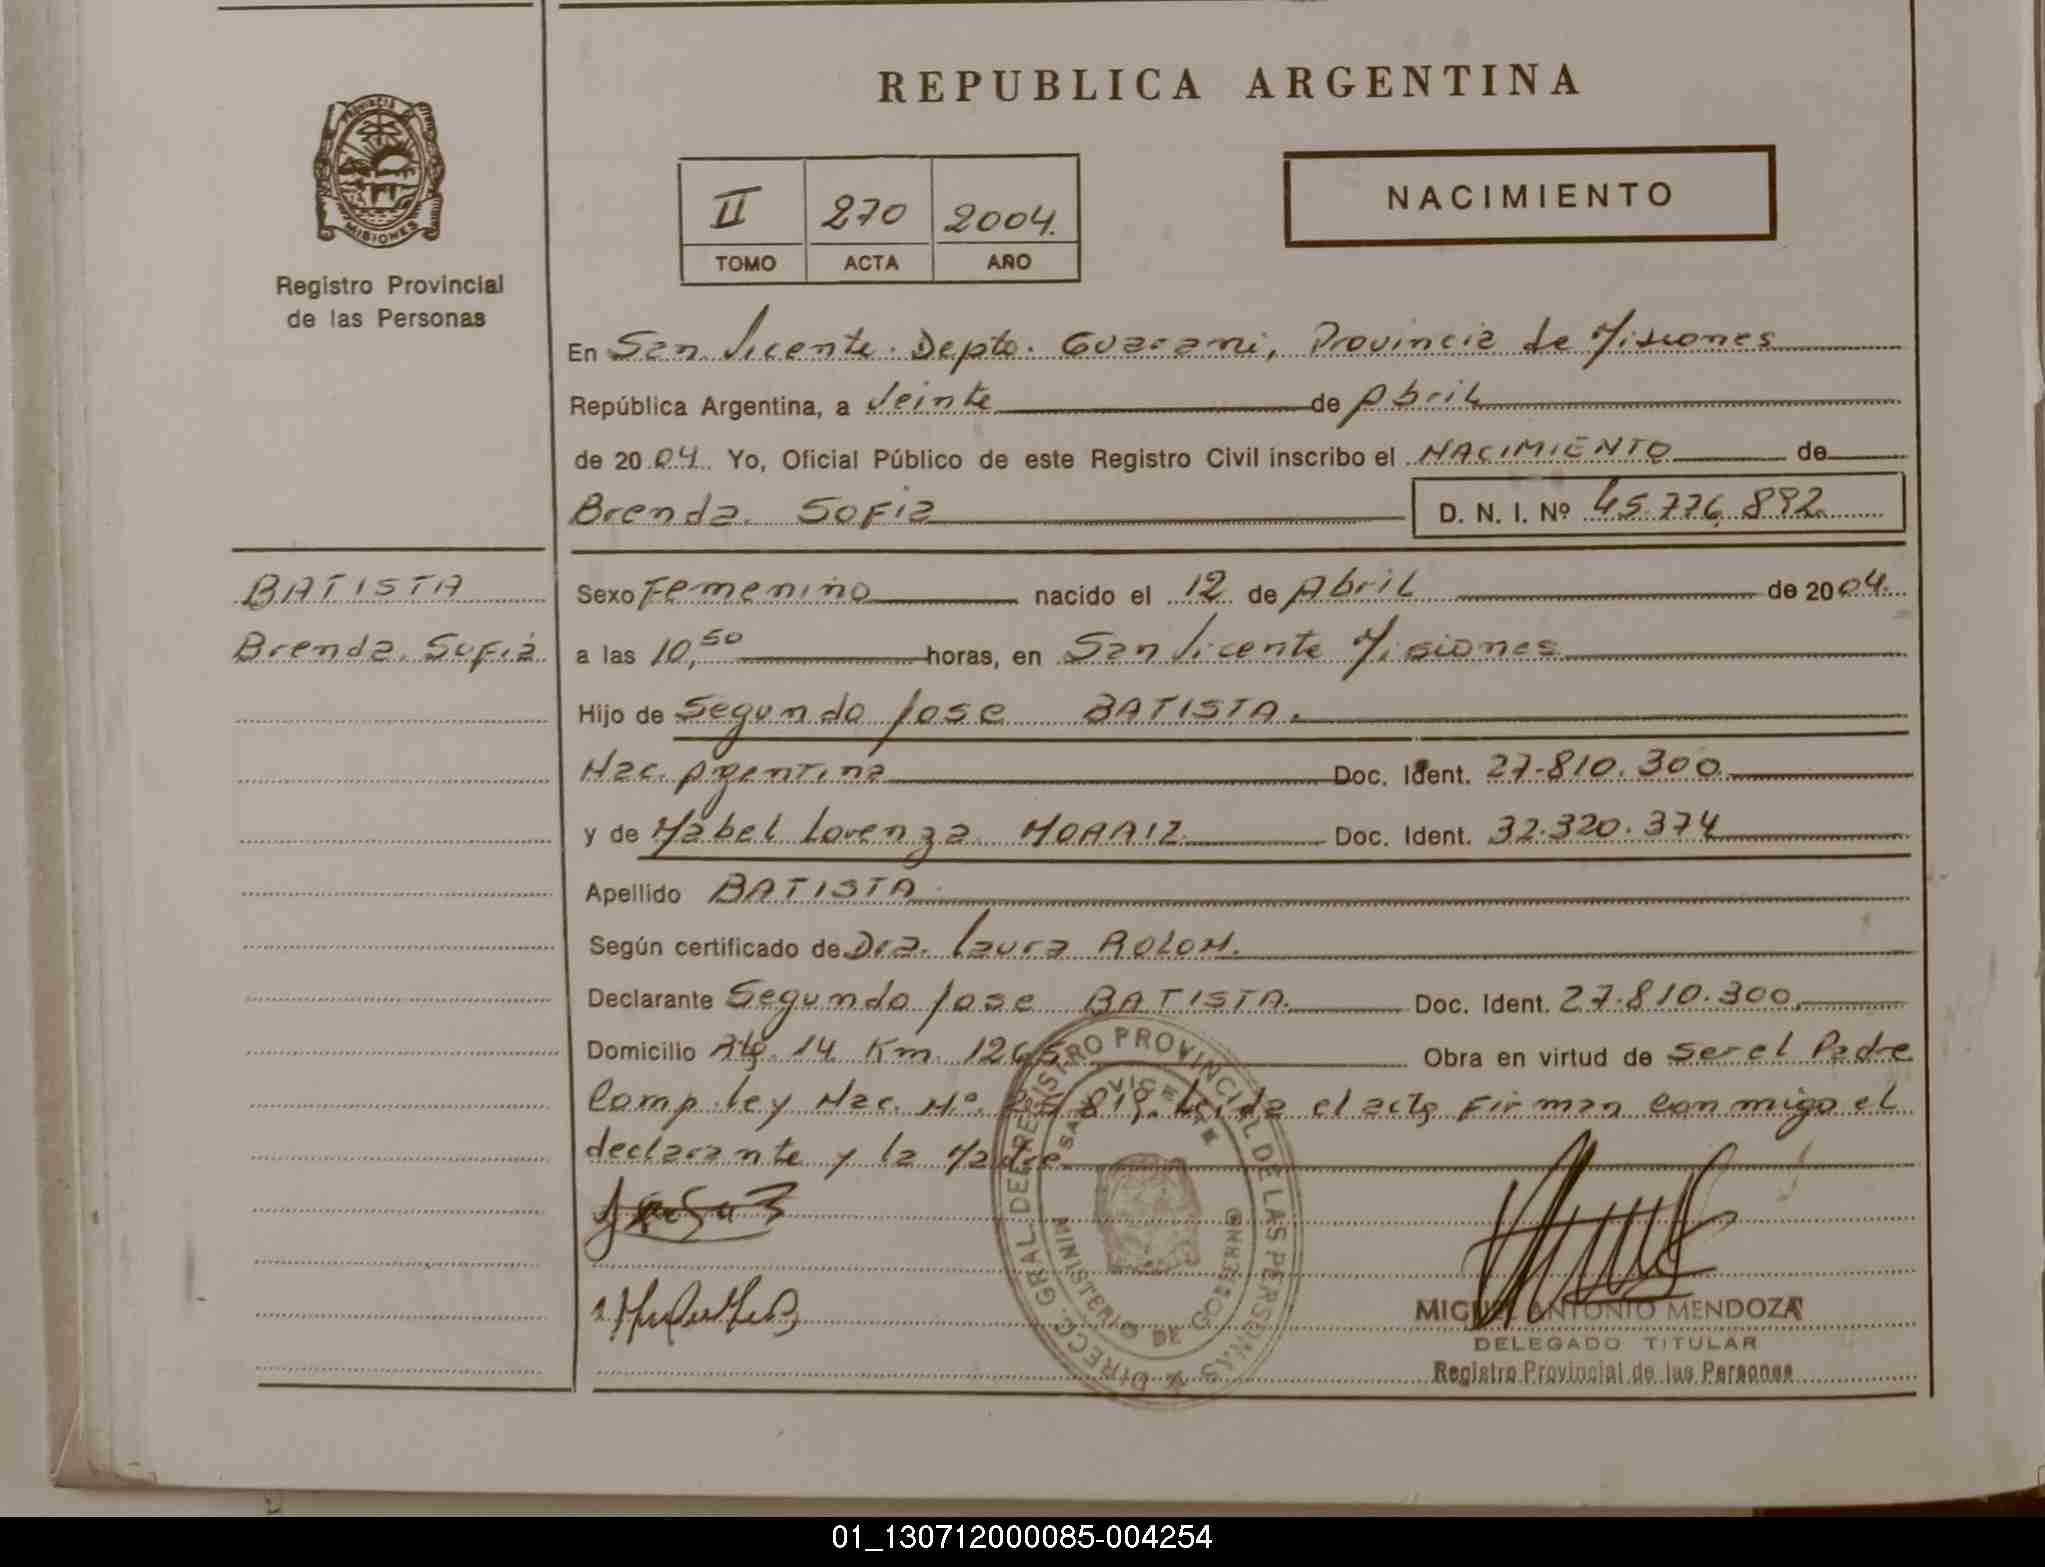 REPUBLICA ARGENTINA
PROVINCIA
MISIONES
Registro Provincial
de las Personas
II 270 2004.
TOMO ACTA AÑO
NACIMIENTO
En San Vicente. Depto. Guarani, Provincia de Misiones
República Argentina, a Veinte de Abril
de 2004. Yo, Oficial Público de este Registro Civil inscribo el NACIMIENTO de
Brenda. Sofia D. N. I. Nº 45.776.892.
BATISTA
Brenda. Sofia
Sexo Femenino nacido el 12 de Abril de 2004.
a las 10,50 horas, en San Vicente Misiones
Hijo de Segundo Jose BATISTA.
Nac. Argentina Doc. Ident. 27.810.300
y de Mabel Lorenza MORAIZ Doc. Ident. 32.320.374
Apellido BATISTA
Según certificado de Dra. Laura ROLON.
Declarante Segundo Jose BATISTA. Doc. Ident. 27.810.300
Domicilio 14 Km. 1265 Obra en virtud de ser el Padre
Comp. ley Nac. Nº. Leida el acta Firman Con migo el
declarante y la Madre.
DIRECC. GRAL. DEL REGISTRO PROVINCIAL DE LAS PERSONAS
SAN VICENTE
MINISTERIO DE GOBIERNO
MIGUEL ANTONIO MENDOZA
DELEGADO TITULAR
Registro Provincial de las Personas
01_130712000085-004254